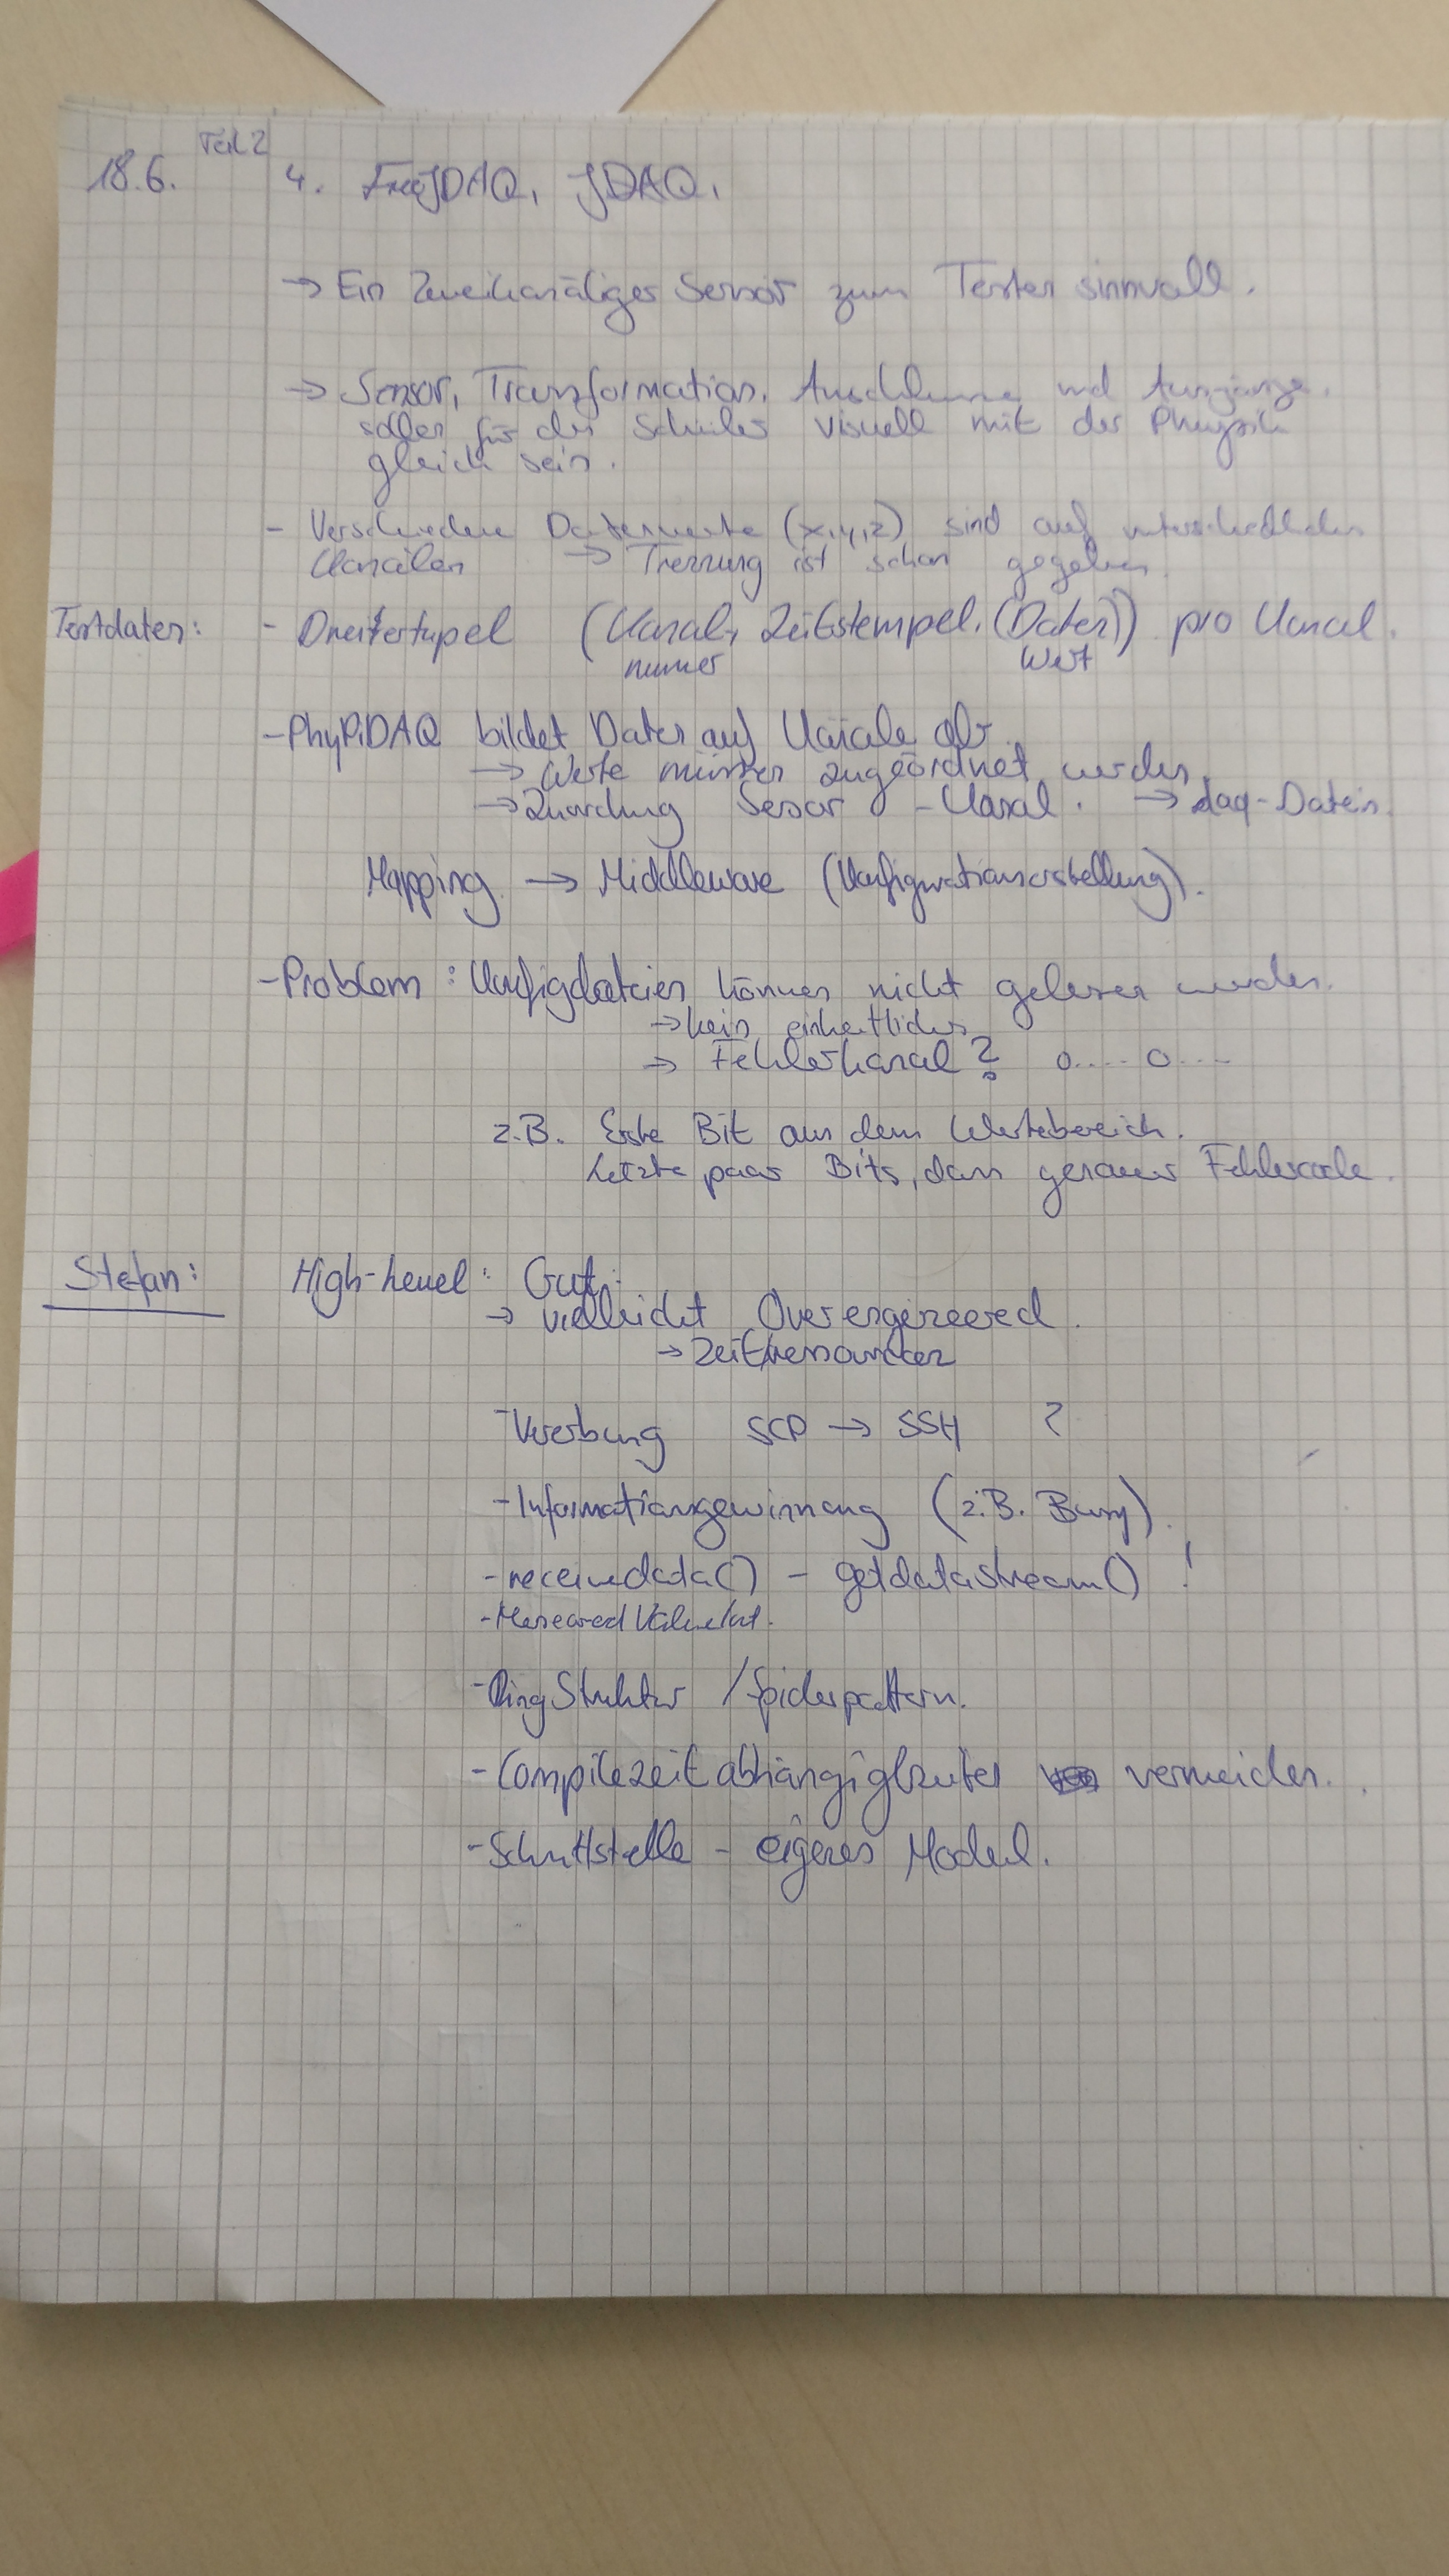 Teil 2
18.6. 4. FreeJDAQ, JDAQ,
→ Ein Zweikanäliger Sensor zum Testen sinnvoll.
→ Sensor, Transformation, und Ausgänge
sollen für den Schüler visuell mit der Physik
gleich sein.
- Verschiedene Datenwerte (x,y,z) sind auf unterschiedlichen
Kanälen → Trennung ist schon gegeben.
Testdaten: - Dreiertupel (Kanal, Zeitstempel, (Daten)) pro Kanal.
numer Wert
- PhyPiDAQ bildet Daten auf Kanäle ab.
→ Werte müssen zugeordnet werden.
→ Zuordnung Sensor - Kanal. → daq-Datein.
Mapping → Middleware (Konfigurationserstellung).
- Problem: Konfigdateien können nicht gelesen werden.
→ kein einheitliches
→ Fehlerkanal? 0.... 0...
z.B. Erste Bit aus dem Wertebereich.
Letzte paar Bits, dann genauer Fehlercode.
Stefan: High-Level: Gut.
→ vielleicht Overengineered.
→ Zeitressourcen
- Vererbung SCP → SSH ?
- Informationsgewinnung (z.B. Busy).
- receivedata() - getdatastream() !
- Ring Struktur / Spiderpattern.
- Compilezeitabhängigkeiten vermeiden.
- Schnittstelle - eigenes Modul.